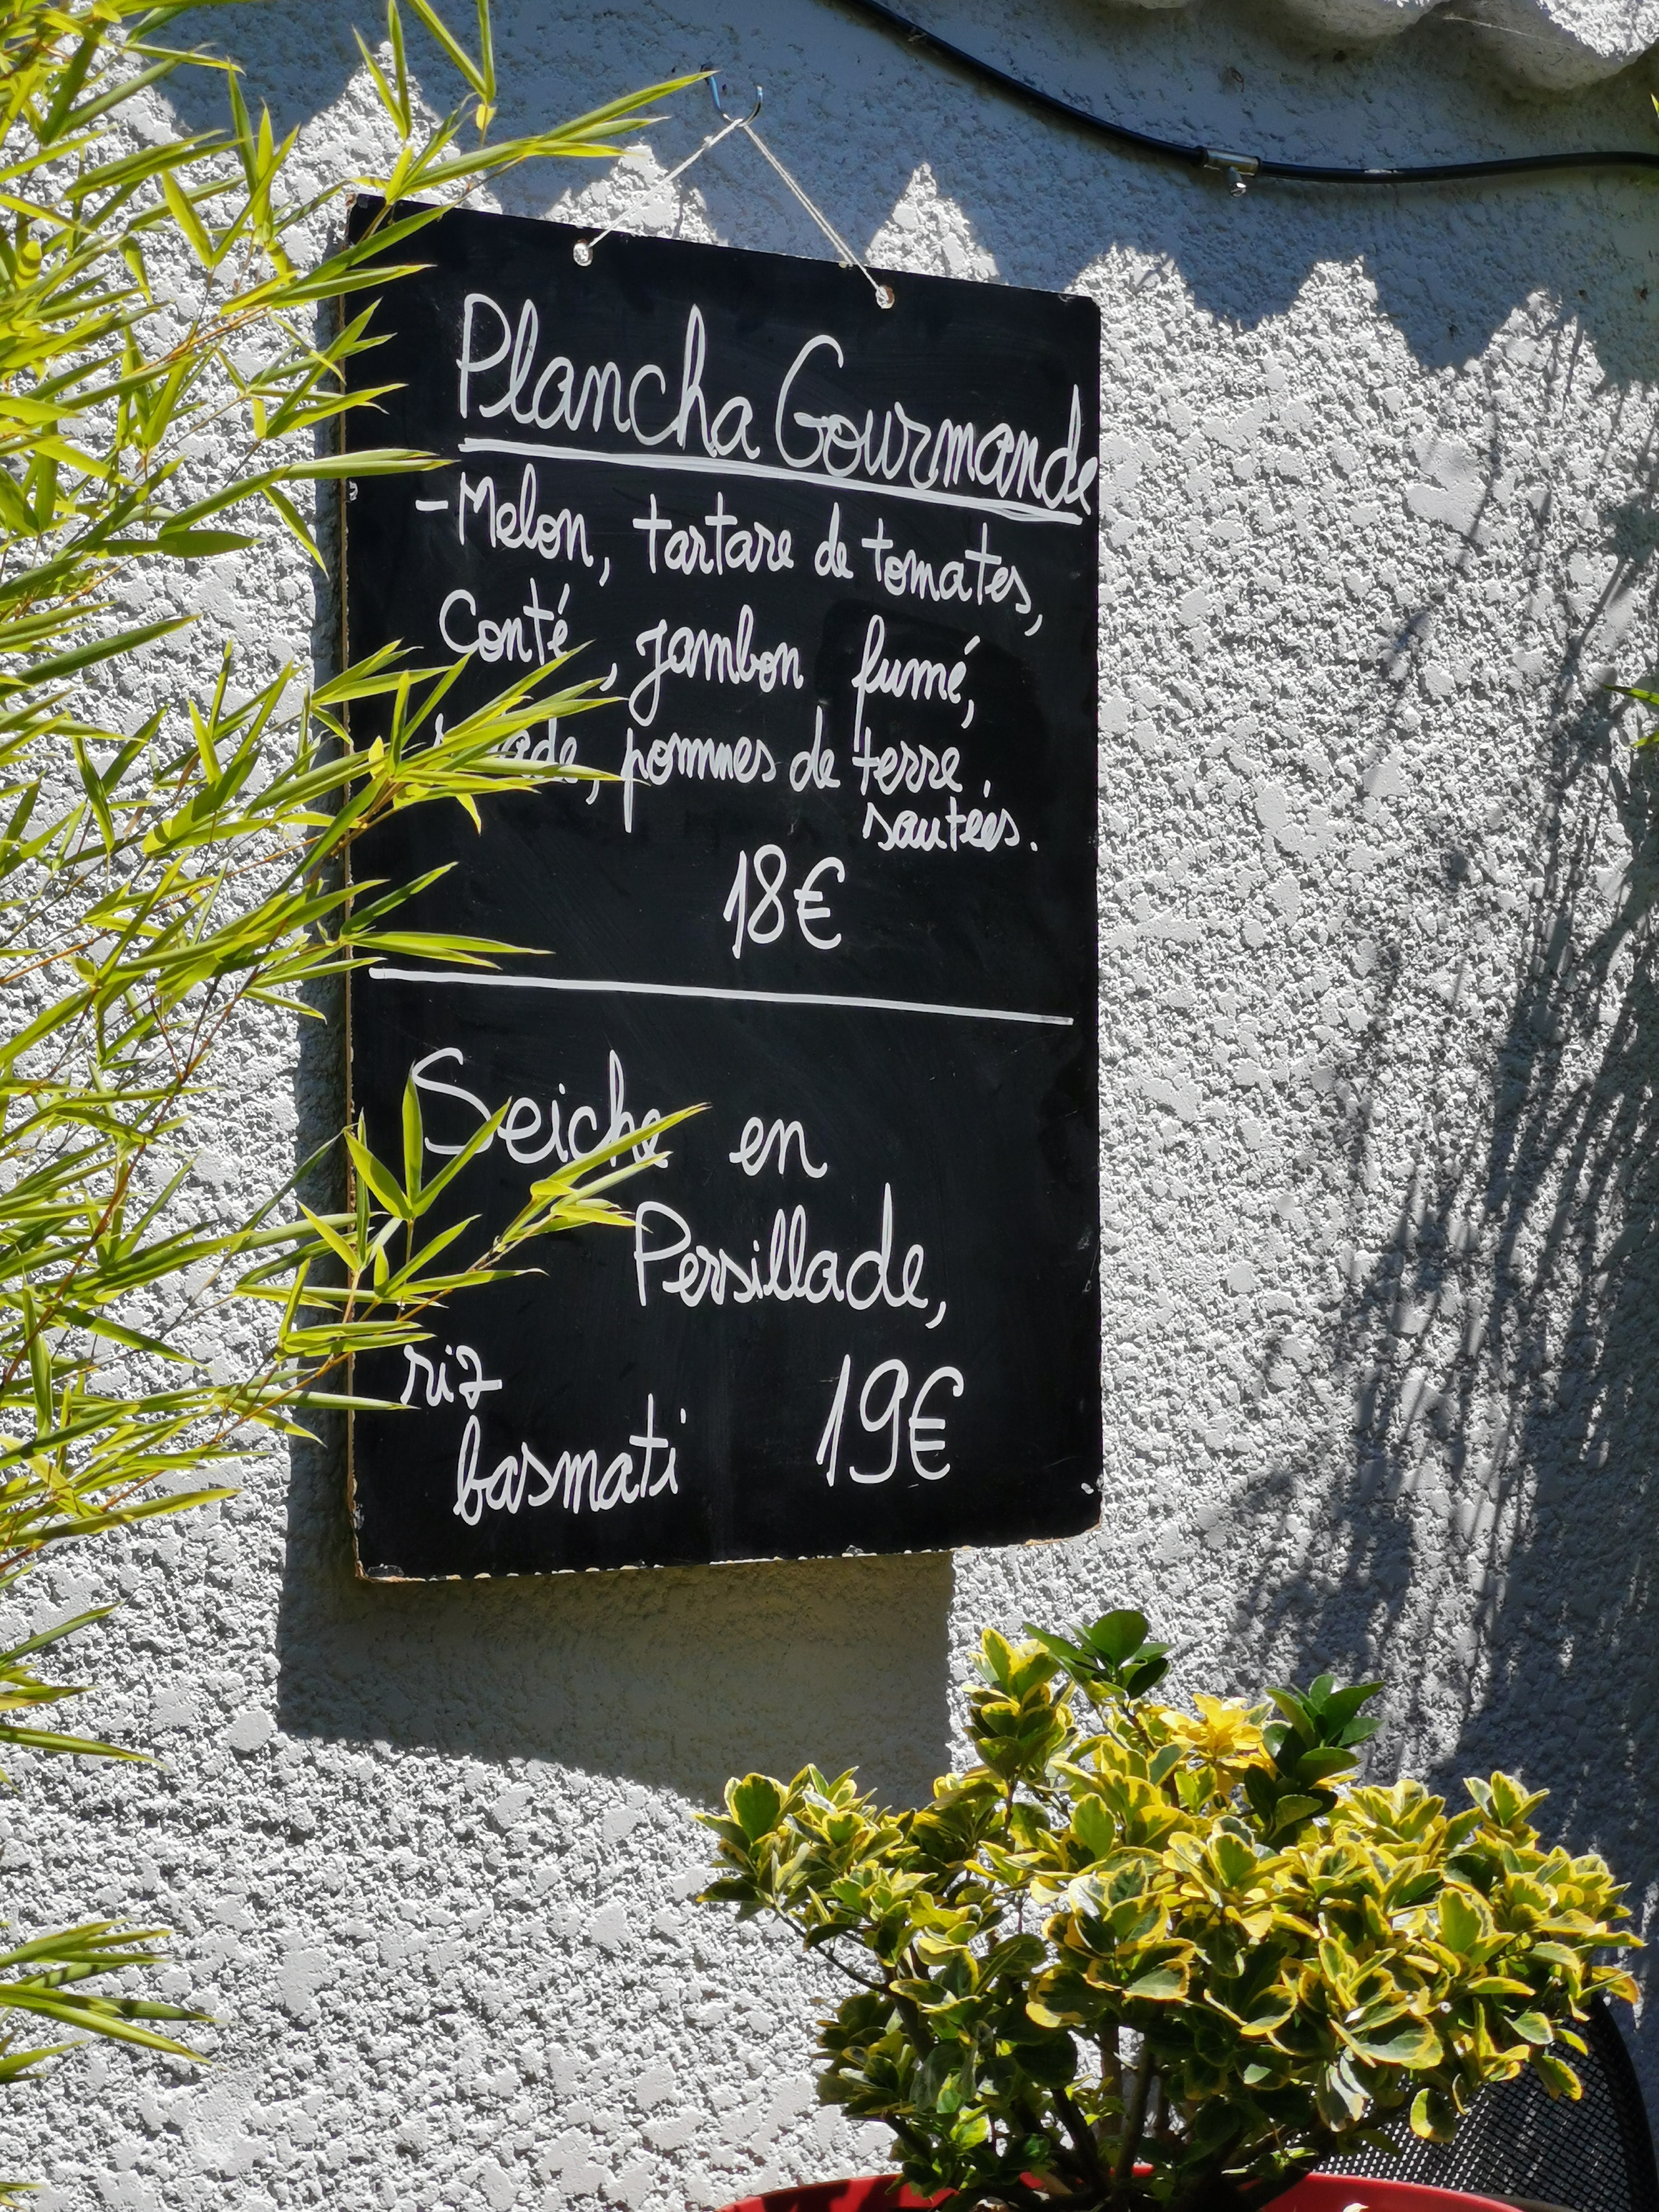 Plancha Gourmande
- Melon, tartare de tomates,
Conté, jambon fumé,
pommes de terre
sautées.
18€
Seiche en
Persillade,
riz
basmati
19€